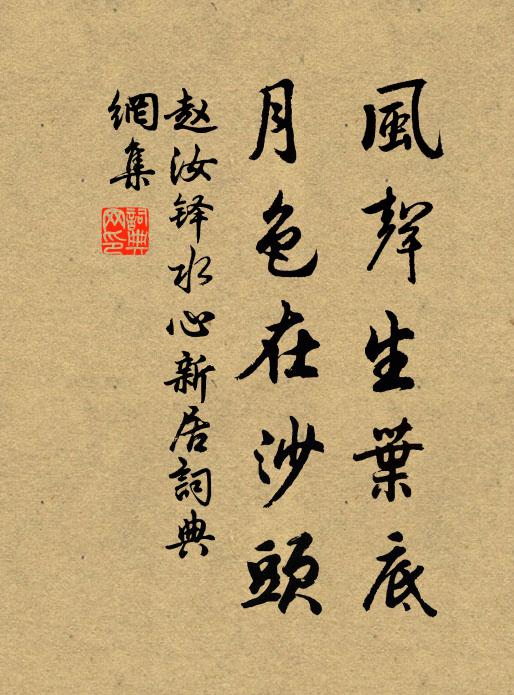 風聲生葉底
月色在沙頭
赵汝铎水心新居詞典
網集
詞典
网印